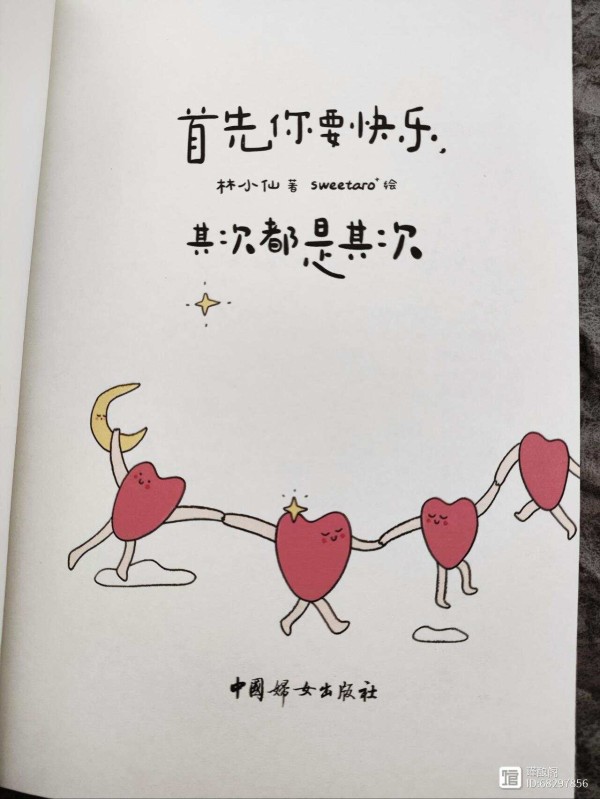 首先你要快乐，
林小仙 著 sweetaro⁺ 绘
其次都是其次
中國婦女出版社
ID:68297856